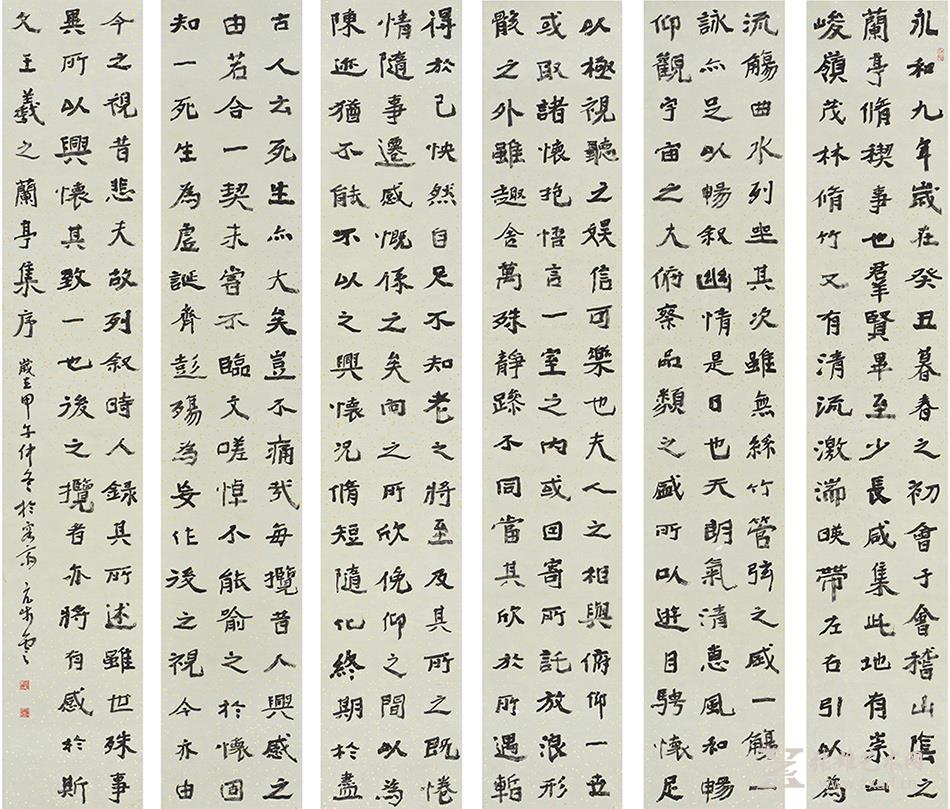 永和九年歲在癸丑暮春之初會于會稽山陰之
蘭亭脩稧事也羣賢畢至少長咸集此地有崇山
峻嶺茂林脩竹又有清流激湍暎帶左右引以為
流觴曲水列坐其次雖無絲竹管弦之盛一觴一
詠亦足以暢叙幽情是日也天朗氣清惠風和暢
仰觀宇宙之大俯察品類之盛所以遊目騁懷足
以極視聽之娛信可樂也夫人之相與俯仰一世
或取諸懷抱悟言一室之內或因寄所託放浪形
骸之外雖趣舍萬殊靜躁不同當其欣於所遇暫
得於己怏然自足不知老之將至及其所之既惓
情隨事遷感慨係之矣向之所欣俛仰之間以為
陳迹猶不能不以之興懷況脩短隨化終期於盡
古人云死生亦大矣豈不痛哉每攬昔人興感之
由若合一契未嘗不臨文嗟悼不能喻之於懷固
知一死生為虛誕齊彭殤為妄作後之視今亦由
今之視昔悲夫故列叙時人錄其所述雖世殊事
異所以興懷其致一也後之攬者亦將有感於斯
文王羲之蘭亭集序 歲在甲午仲冬於